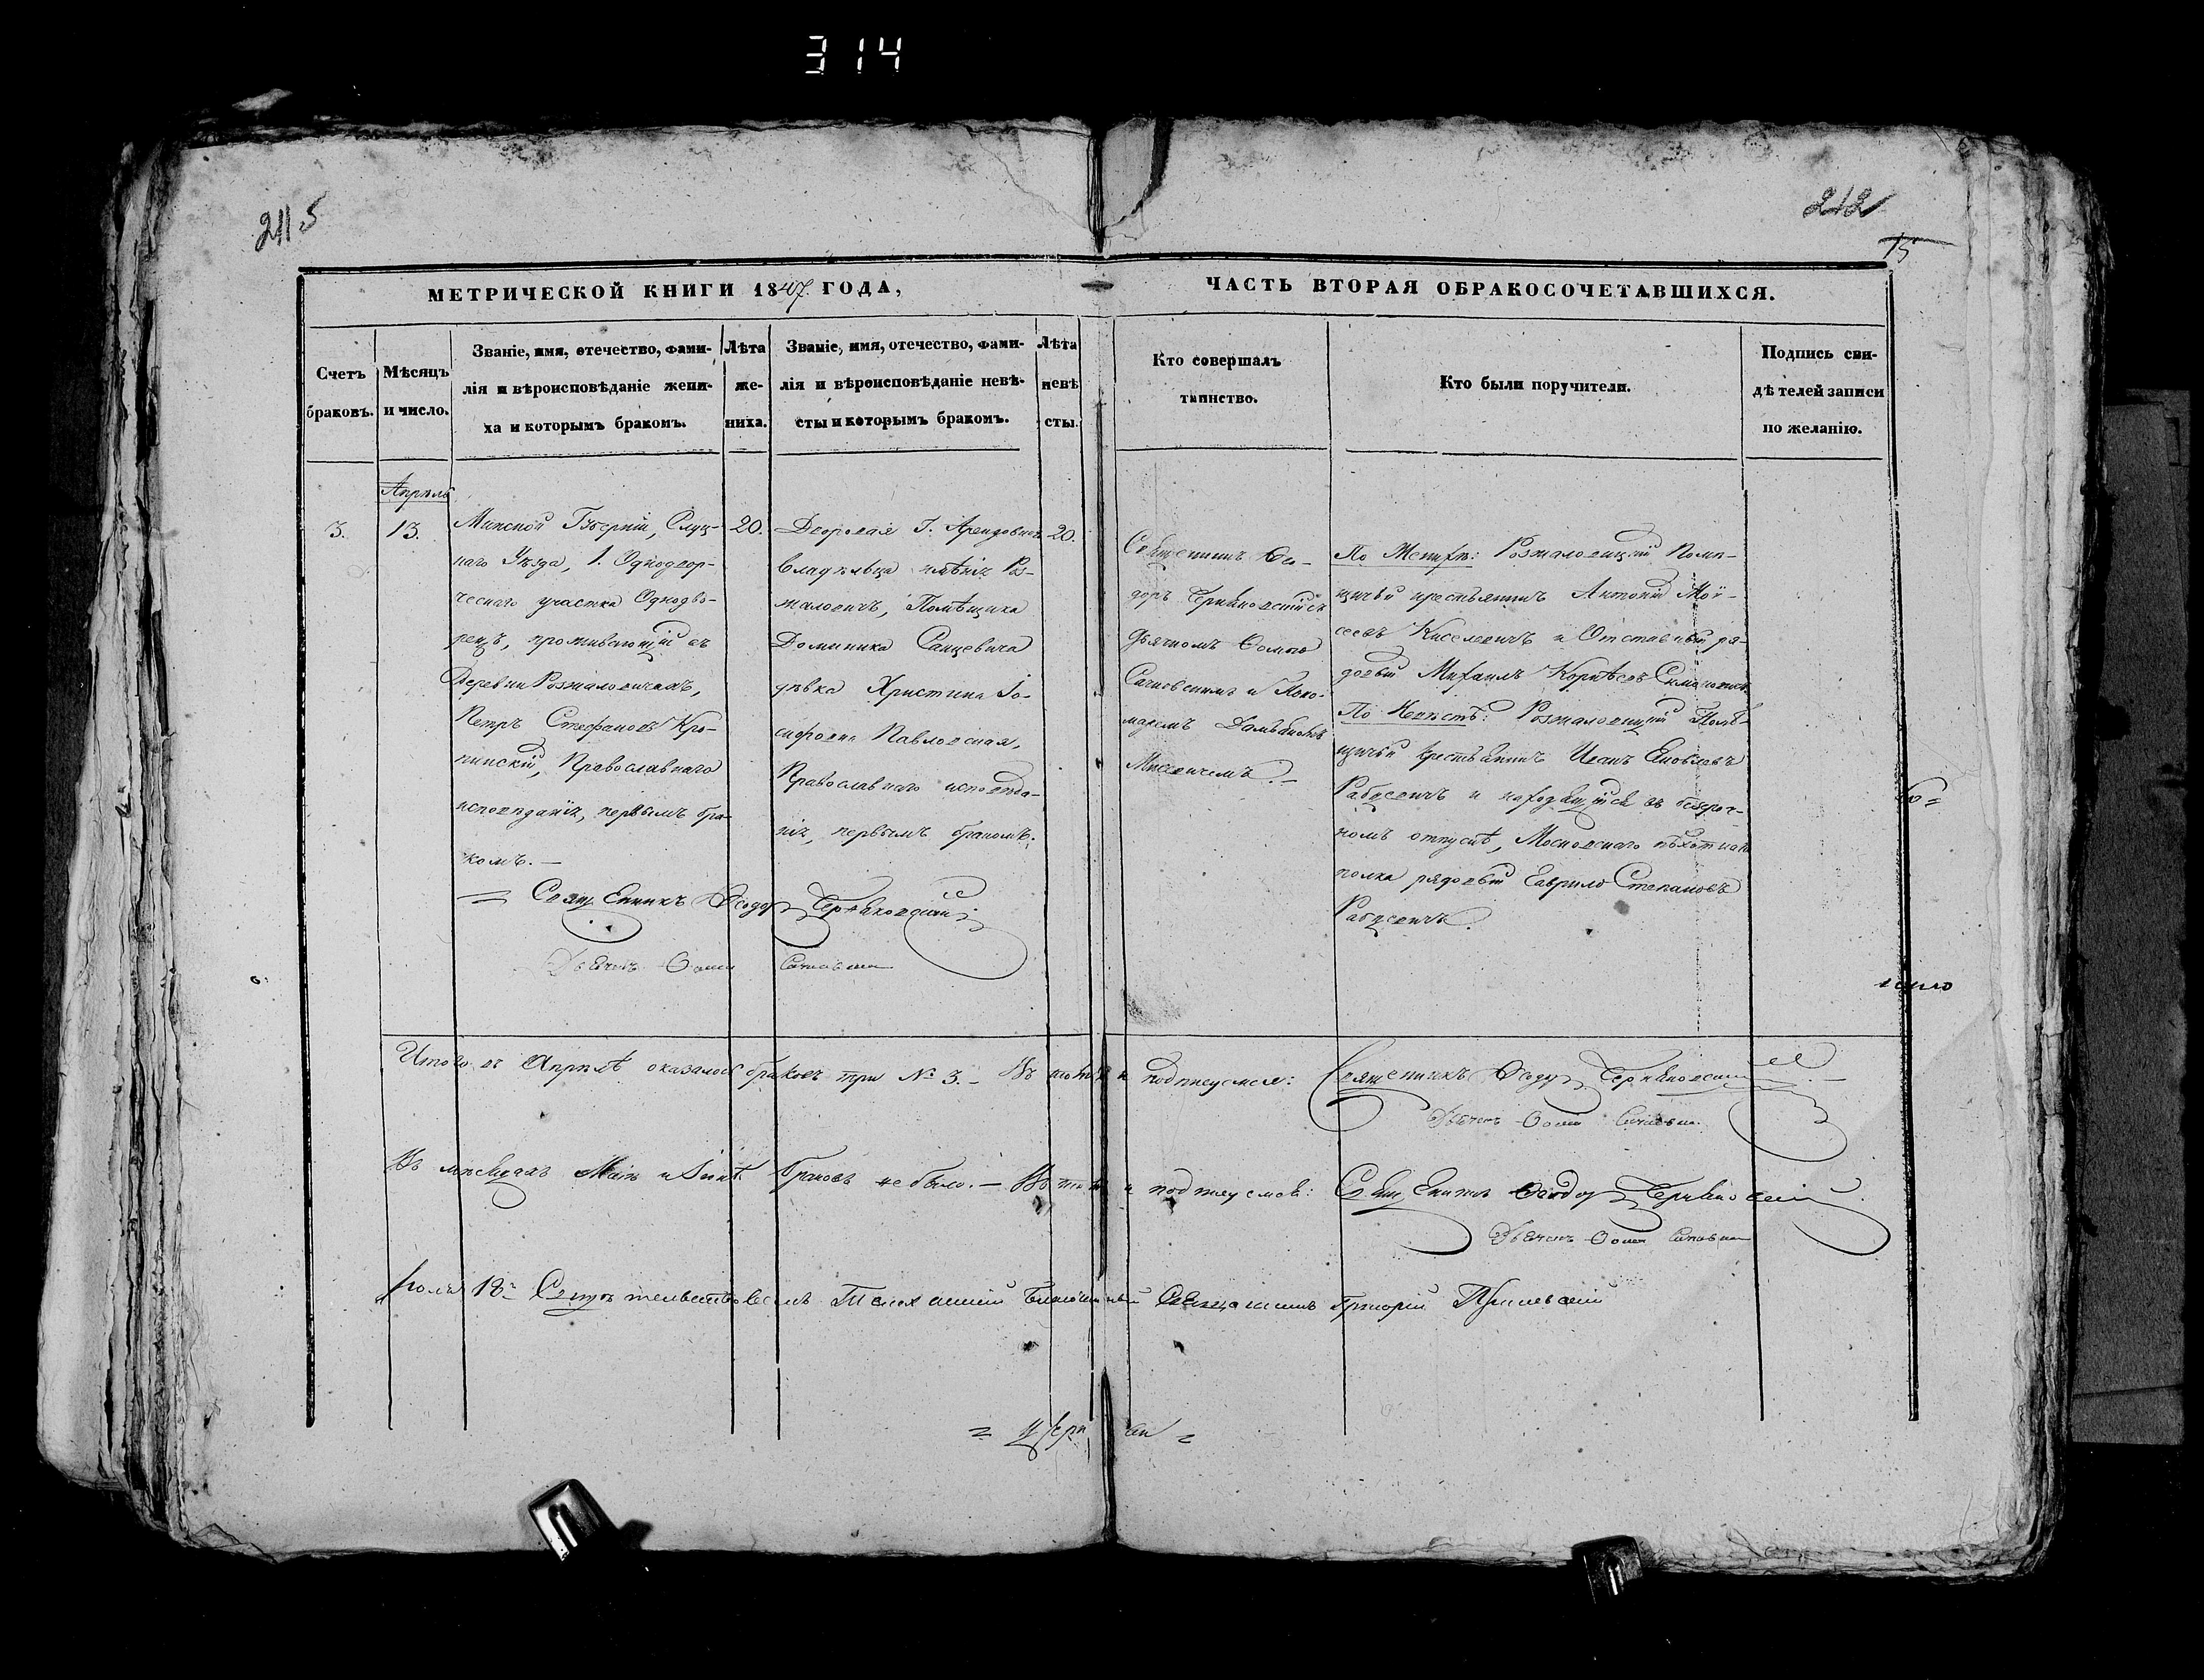 314
2115
212
15
МЕТРИЧЕСКОЙ КНИГИ 1847 ГОДА,
ЧАСТЬ ВТОРАЯ ОБРАКОСОЧЕТАВШИХСЯ.
Счетъ
браковъ.
Мѣсяцъ
и число.
Званіе, имя, отечество, фами-
лія и вѣроисповѣданіе жени-
ха и которымъ бракомъ.
Лѣта
же-
ниха.
Званіе, имя, отечество, фами-
лія и вѣроисповѣданіе невѣ-
сты и которымъ бракомъ.
Лѣта
невѣ
сты.
Кто совершалъ
таинство.
Кто были поручители.
Подпись сви-
дѣтелей записи
по желанію.
3.
Апрѣль
13.
Минской Губерніи, Слуц-
каго Уѣзда, 1. Однодвор-
ческаго участка Однодво-
рецъ, проживающій въ
Деревни Розжаловичахъ,
Петръ Стефановъ Кро-
пинскій, Православнаго
исповѣданія, первымъ бра-
комъ. —
20.
Дворовая Г. Арендовнаго
Владѣльца имѣнія Роз-
жаловичъ, Помѣщика
Доминика
дѣвка Христина Іо-
сифовна Павловская,
Православнаго исповѣда-
нія, первымъ бракомъ.
20.
Священникъ Ѳео-
доръ Черняковскій съ
дьячкомъ Ѳомою
Сачковскимъ и Поно-
маремъ
По Женихѣ: Розжаловицкій Помѣ-
щичій крестьянинъ Антоній Мой-
сеевъ Киселевичъ и Отставный ря-
довый Михаилъ Корнѣевъ
По Невѣстѣ: Розжаловицкій Помѣ-
щичій крестьянинъ Иванъ Яковлевъ
Рабцевичъ и находящійся въ безсроч-
номъ отпускѣ, Московскаго пѣхотнаго
полка рядовый Гаврило Степановъ
Рабцевичъ.
= Священникъ Ѳеодоръ Черняковскій
Дьячекъ Ѳома Сачковскій
Итого въ Апрѣлѣ оказалось браковъ три № 3. — Въ томъ и подписуемся: Священникъ Ѳеодоръ Черняковскій. —
Дьячекъ Ѳома Сачковскій
Въ мѣсяцахъ Маіѣ и Іюнѣ браковъ не было. — Въ томъ и подписуемся: Священникъ Ѳеодоръ Черняковскій.
Дьячекъ Ѳома Сачковскій
Іюля 18 Свидѣтельствовалъ Благочинный Священникъ Григорій